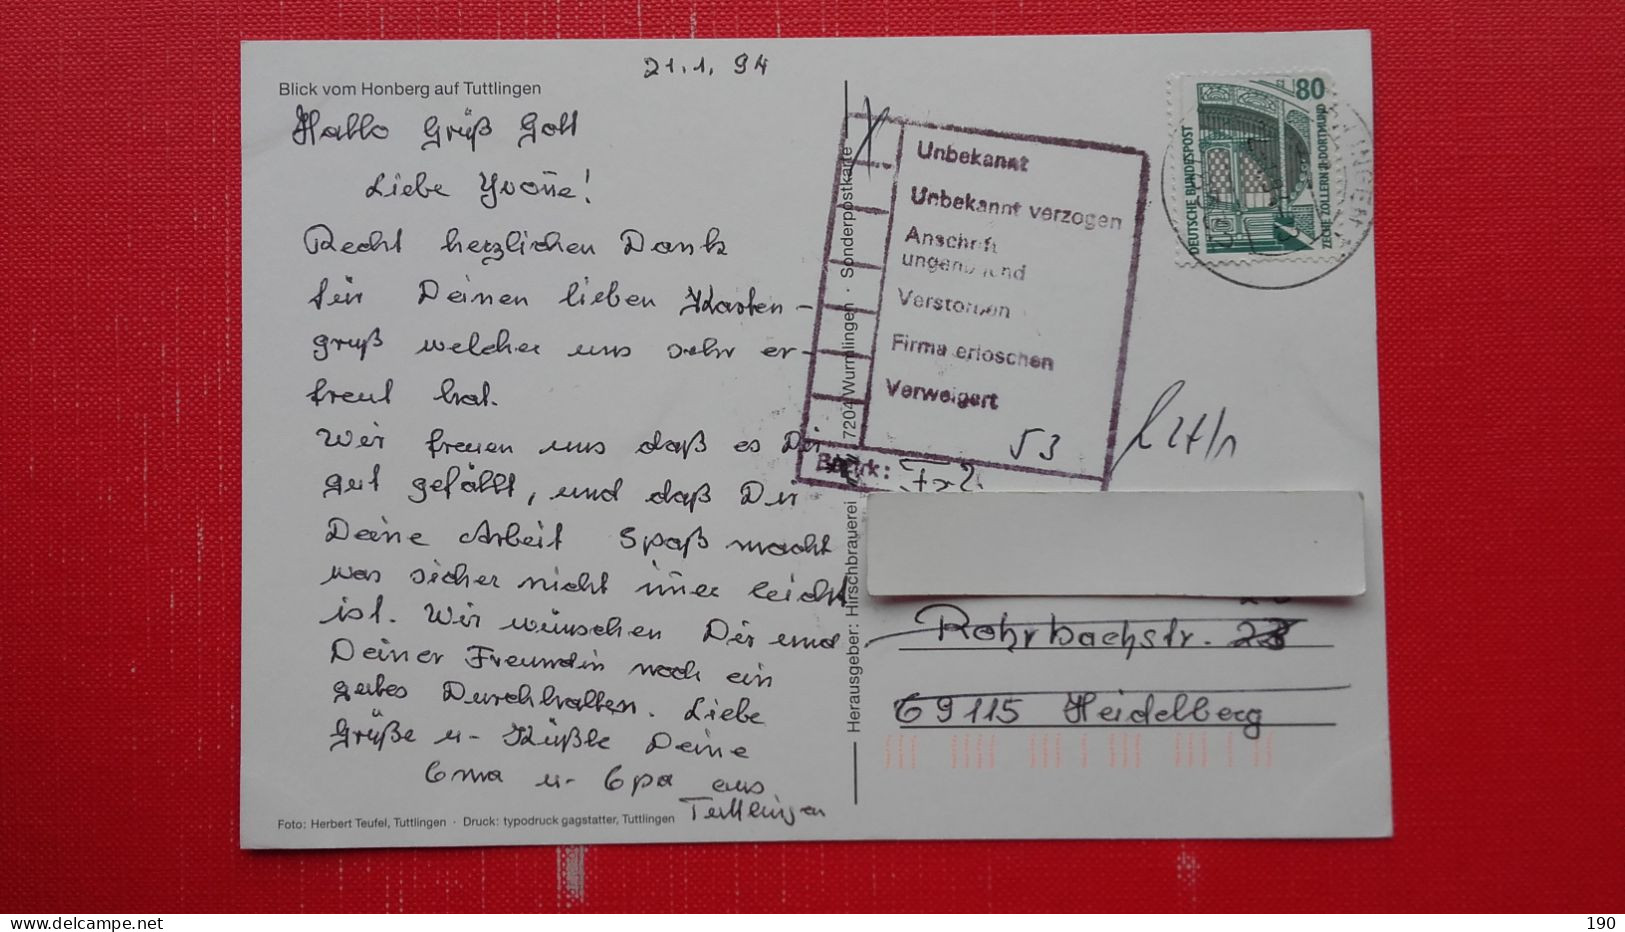 21.1.94
Blick vom Honberg auf Tuttlingen
Hallo Grüß Gott
Liebe Yvoñe!
Recht herzlichen Dank
für Deinen lieben Karten-
gruß welcher uns sehr er-
freut hat.
Wir freuen uns daß es Dir
gut gefällt, und daß Dir
Deine Arbeit Spaß macht
was sicher nicht im̄er leicht
ist. Wir wünschen Dir und
Deiner Freundin noch ein
gutes Durchhalten. Liebe
Grüße u- Küßle Deine
Oma u- Opa aus
Tuttlingen
Foto: Herbert Teufel, Tuttlingen · Druck: typodruck gagstatter, Tuttlingen
Herausgeber: Hirschbrauerei 7204 Wurmlingen · Sonderpostkarte
Unbekannt
Unbekannt verzogen
Anschrift
ungenügend
Verstorben
Firma erloschen
Verweigert
53
Bezirk:
80
DEUTSCHE BUNDESPOST
ZECHE ZOLLERN II · DORTMUND
Rohrbachstr.
69115 Heidelberg
190